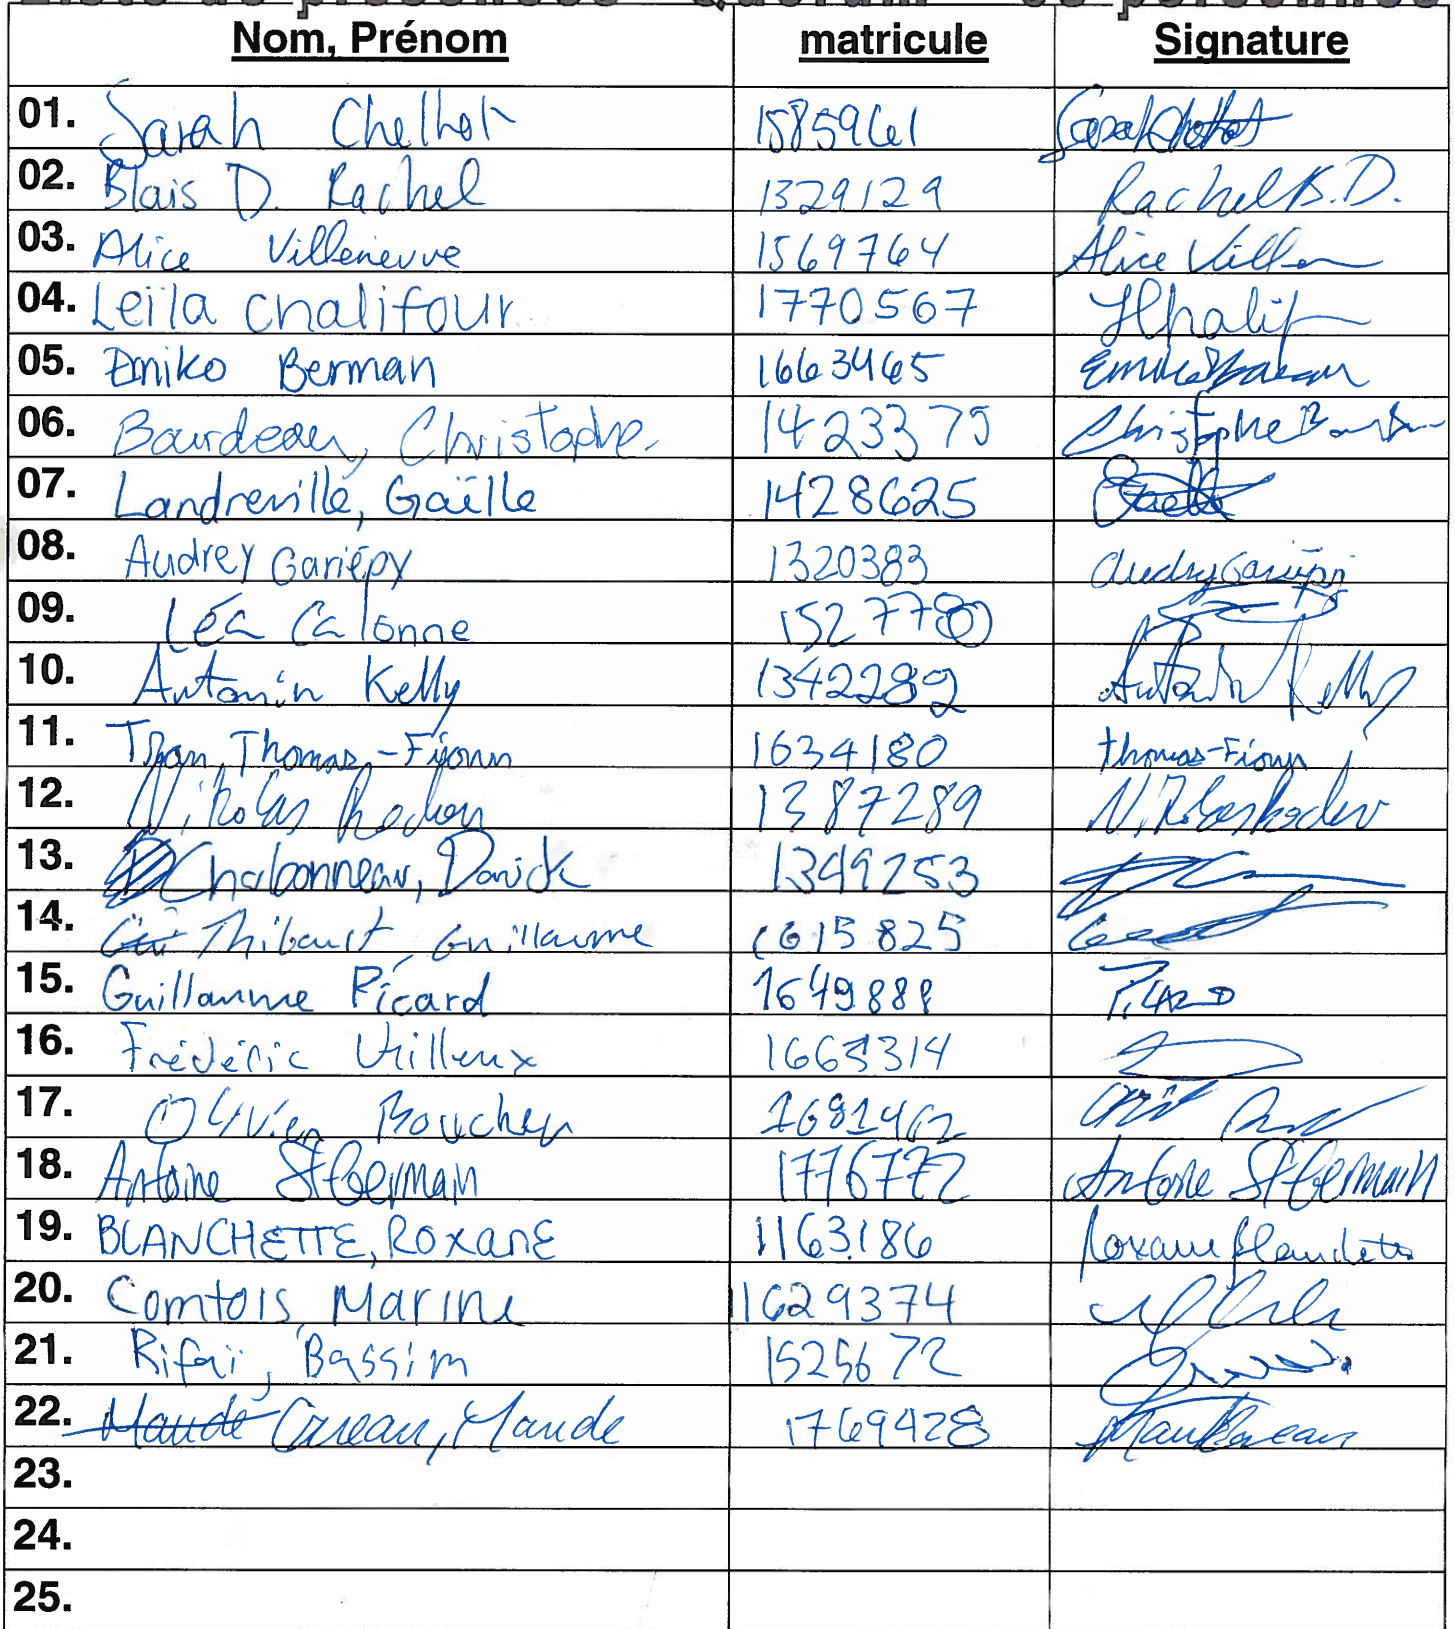 Nom, Prénom matricule Signature
01. Sarah Chelhot 1585961
02. Blais D. Rachel 1329129 Rachel B.D.
03. Alice Villeneuve 1569764 Alice Villen
04. Leïla Chalifour 1770567
05. Emiko Berman 1663465
06. Bourdeau, Christophe. 1423375 Christophe
07. Landreville, Gaëlle 1428625 Gaëlle
08. Audrey Gariépy 1320383 Audrey Gariépy
09. Léa Calonne 1527780
10. Antonin Kelly 1342289 Antonin Kelly
11. Tran, Thomas-Fionn 1634180 thomas-Fionn
12. Nikolas 1387289
13. Charbonneau, Danick 1349253
14. Thibault, Guillaume 1615825
15. Guillaumme Picard 1649888 Picard
16. Frédéric Veilleux 1663314
17. Olivier Boucher 1681462
18. Antoine St-Germain 1776772 Antoine St-Germain
19. BLANCHETTE, Roxane 1163186 Roxane Blanchette
20. Comtois, Marine 11629374
21. Rifaï, Bassim 1525672
22. Maude Careau, Maude 1769428
23.
24.
25.